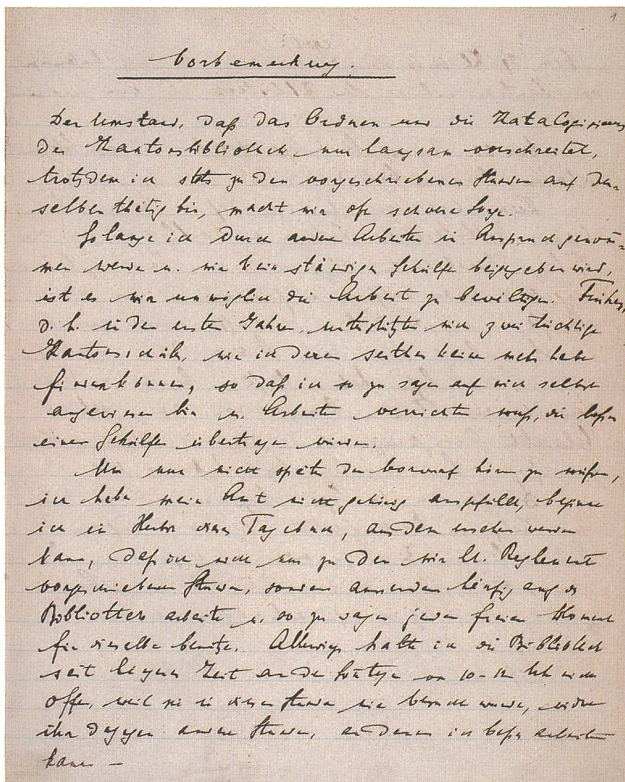 1
Vorbemerkung.
Der Umstand, daß das Ordnen und die Katalogisierung
der Kantonsbibliothek nur langsam vorschreitet,
trotzdem ich stets zu den vorgeschriebenen Stunden auf der-
selben thätig bin, macht mir oft schwere Sorge.
Solange ich durch andere Arbeiten in Anspruch genom-
men werde u. mir kein ständiger Gehilfe beigegeben wird,
ist es mir unmöglich die Arbeit zu bewältigen. Früher,
d. h. in den ersten Jahren, unterstützten mich zwei tüchtige
Kantonsschüler, wie ich deren seither keine mehr habe
finden können, so daß ich so zu sagen auf mich selbst
angewiesen bin u. Arbeiten verrichten muß, die besser
einem Gehilfen übertragen würden.
Um nur nicht später den Vorwurf hören zu müssen,
ich habe mein Amt nicht gehörig ausgefüllt, beginne
ich im Herbst dieses Tagebuch, aus dem ersehen werden
kann, daß ich nicht nur zu den mir lt. Reglement
vorgeschriebenen Stunden, sondern ausserdem häufig auf der
Bibliothek arbeite u. so zu sagen jeden freien Moment
für dieselbe benutze. Allerdings halte ich die Bibliothek
seit längerer Zeit an den von 10-12 Uhr nicht
offen, weil sie in diesen Stunden nie besucht wurde, widme
ihr dagegen andere Stunden, an denen ich besser arbeiten
kann —